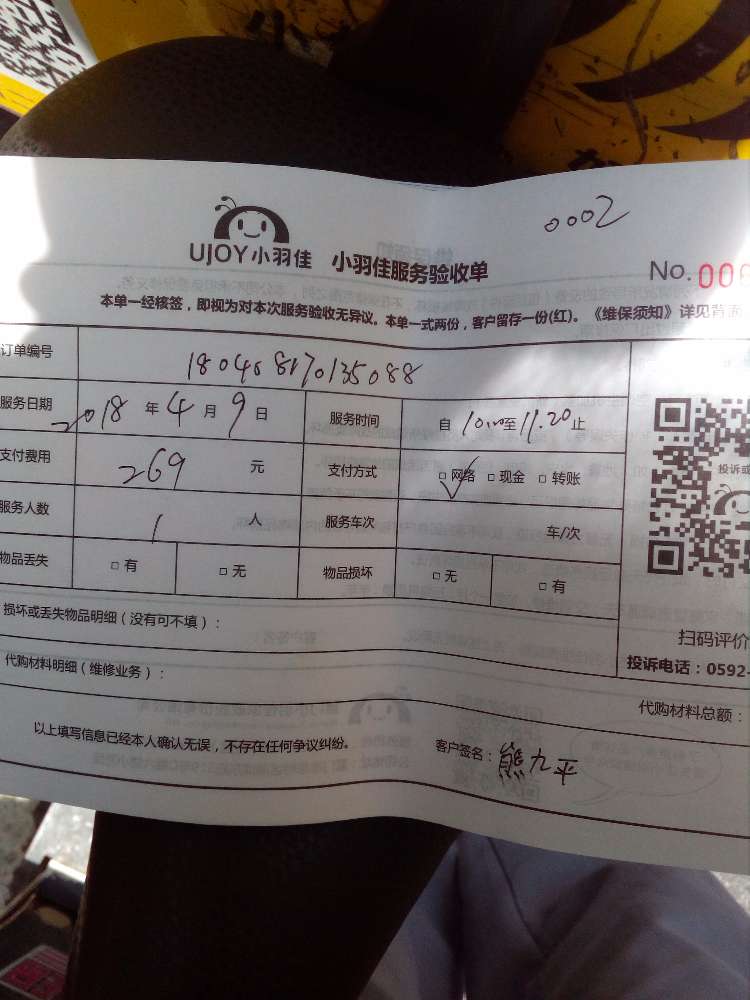 0002
UJOY小羽佳 小羽佳服务验收单
No. 00
本单一经核签，即视为对本次服务验收无异议。本单一式两份，客户留存一份(红)。《维保须知》详见背面
订单编号 180408170135088
服务日期 2018 年 4 月 9 日 服务时间 自 10.00 至 11.20 止
支付费用 269 元 支付方式 □ 网络 □ 现金 □ 转账
服务人数 1 人 服务车次 车/次
物品丢失 □ 有 □ 无 物品损坏 □ 无 □ 有
投诉或
扫码评价
投诉电话：0592-
损坏或丢失物品明细（没有可不填）：
代购材料明细（维修业务）：
代购材料总额：
以上填写信息已经本人确认无误，不存在任何争议纠纷。 客户签名：熊九平